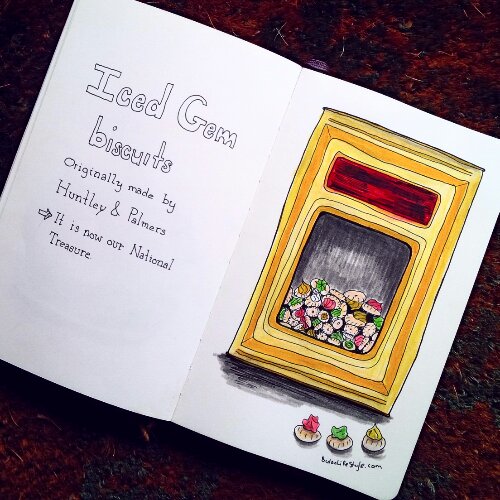 Iced Gem
biscuits
Originally made by
Huntley & Palmers
⇒ It is now our National
Treasure.
BulanLifestyle.com